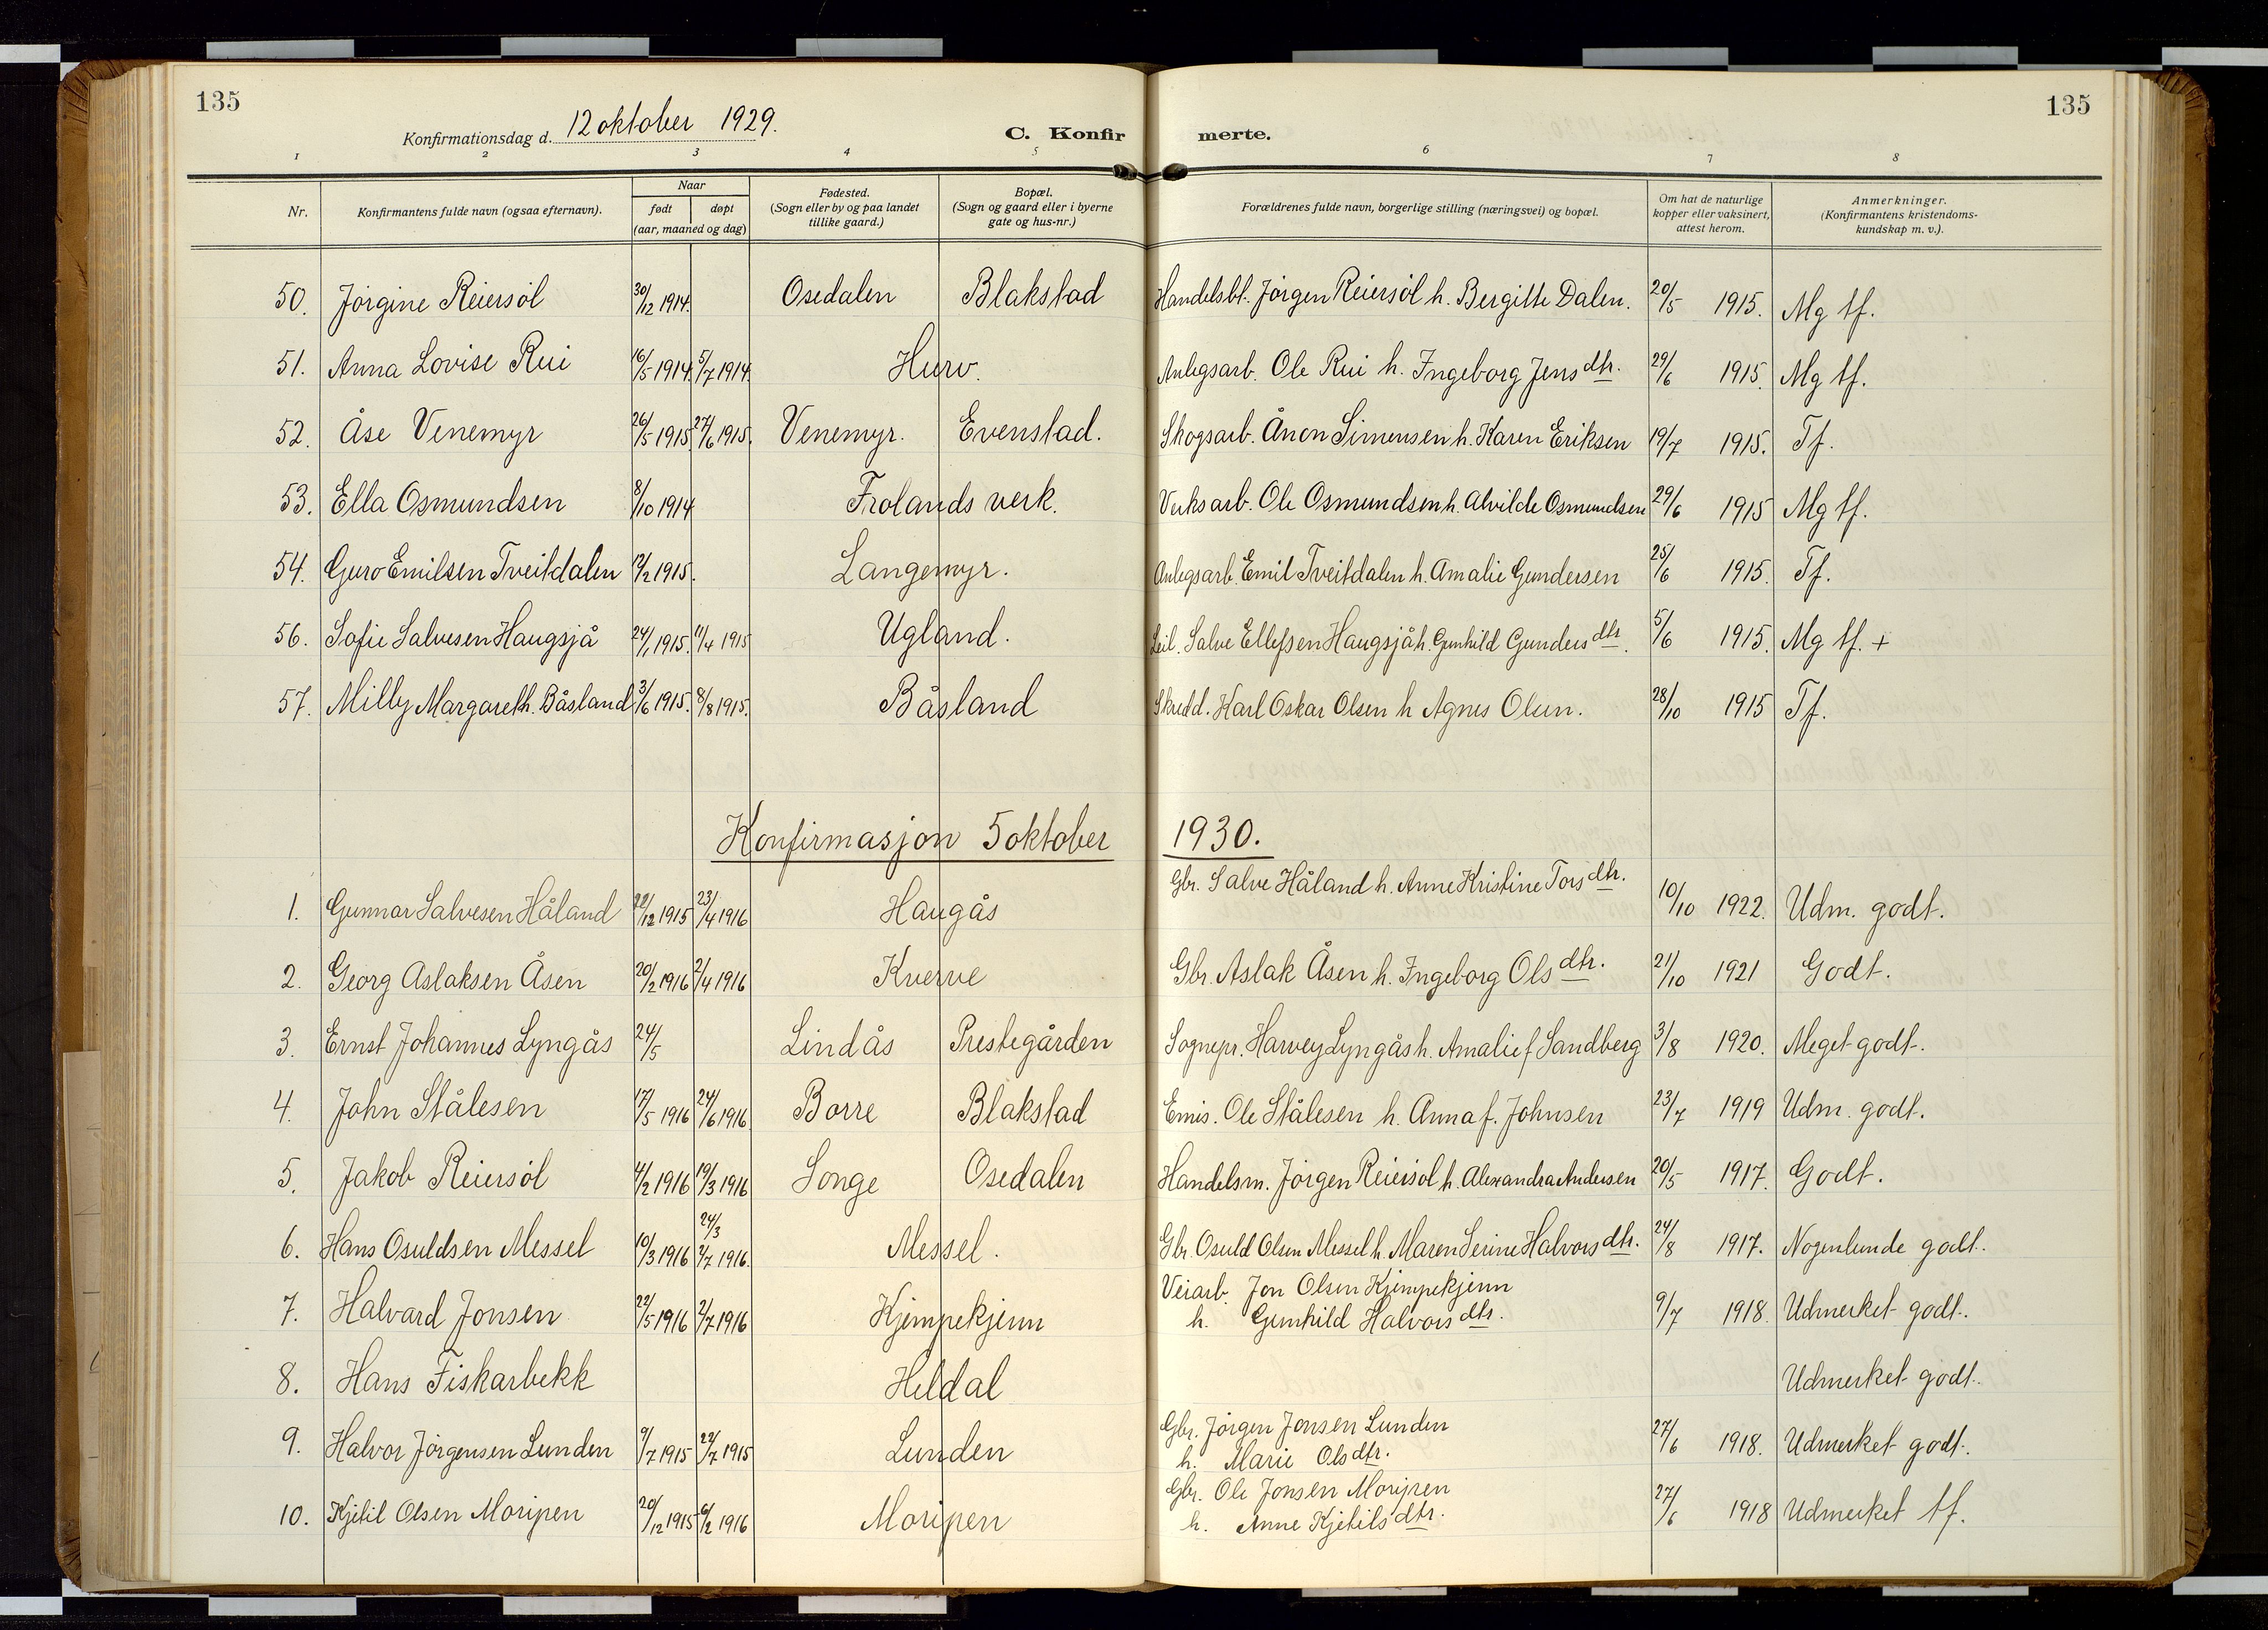 135
135
Konfirmationsdag d. 12 oktober 1929.
C. Konfir merte.
1 2 3 4 5 6 7 8
Nr.
Konfirmantens fulde navn (ogsaa efternavn).
Naar
født døpt
(aar, maaned og dag)
Fødested.
(Sogn eller by og paa landet
tillike gaard.)
Bopæl.
(Sogn og gaard eller i byerne
gate og hus-nr.)
Forældrenes fulde navn, borgerlige stilling (næringsvei) og bopæl.
Om hat de naturlige
kopper eller vaksinert,
attest herom.
Anmerkninger.
(Konfirmantens kristendoms-
kundskap m. v.).
50. Jörgine Reiersöl 30/12 1914. Osedalen Blakstad Handelsbt. Jörgen Reiersöl h. Bergitte Dalen. 20/5 1915. Mg tf.
51. Anna Lovise Rui 16/5 1914. 5/7 1914. Hurv. Anlegsarb. Ole Rui h. Ingeborg Jensdtr. 29/6 1915. Mg tf.
52. Åse Venemyr 26/5 1915. 27/6 1915. Venemyr. Evenstad. Skogsarb. Ånon Simensen h. Karen Eriksen 19/7 1915. Tf.
53. Ella Osmundsen 8/10 1914 Frolands verk. Verksarb. Ole Osmundsen h. Alvilde Osmundsen 29/6 1915 Mg tf.
54. Guro Emilsen Tveitdalen 12/2 1915. Langemyr. Anlegsarb. Emil Tveitdalen h. Amalie Gundersen 25/6 1915. Tf.
56. Sofie Salvesen Haugsjå 24/1 1915. 11/4 1915 Ugland. Leil. Salve Ellefsen Haugsjå h. Gunhild Gundersdtr. 5/6 1915. Mg tf. +
57. Milly Margareth. Båsland 3/6 1915. 8/8 1915. Båsland Skredd. Karl Oskar Olsen h Agnes Olsen. 28/10 1915 Tf.
Konfirmasjon 5 oktober 1930.
1. Gunnar Salvesen Håland 22/12 1915 23/4 1916 Haugås Gbr. Salve Håland h. Anne Kristine Torsdtr. 10/10 1922. Udm. godt.
2. Georg Aslaksen Åsen 20/2 1916 2/4 1916 Kverve Gbr. Aslak Åsen h. Ingeborg Olsdtr. 21/10 1921 Godt.
3. Ernst Johannes Lyngås 24/5 Lindås Prestegården Sognepr. Harvey Lyngås h. Amalie f Sandberg 3/8 1920. Meget godt.
4. John Stålesen 17/5 1916 24/6 1916. Borre Blakstad Emis. Ole Stålesen h. Anna f. Johnsen 23/7 1919 Udm. godt.
5. Jakob Reiersöl 4/2 1916 19/3 1916 Songe Osedalen Handelsm. Jörgen Reiersöl h. Alexandra Andersen 20/5 1917. Godt.
6. Hans Osuldsen Messel 10/3 1916 24/3 2/7 1916. Messel. Gbr. Osuld Olsen Messel h. Maren Serine Halvorsdtr. 24/8 1917. Nogenlunde godt.
7. Halvard Jonsen 22/5 1916 2/7 1916 Kjempekjenn Veiarb. Jon Olsen Kjempekjenn
h. Gunhild Halvorsdtr. 9/7 1918. Udmerket godt.
8. Hans Fiskarbekk Heldal Udmerket godt.
9. Halvor Jörgensen Lunden 9/7 1915 22/7 1915 Lunden Gbr. Jörgen Jonsen Lunden
h. Marie Olsdtr. 27/6 1918. Udmerket godt.
10. Kjetil Olsen Moripen 20/12 1915 6/2 1916 Moripen Gbr. Ole Jonsen Moripen
h. Anne Kjetilsdtr. 27/6 1918 Udmerket tf.